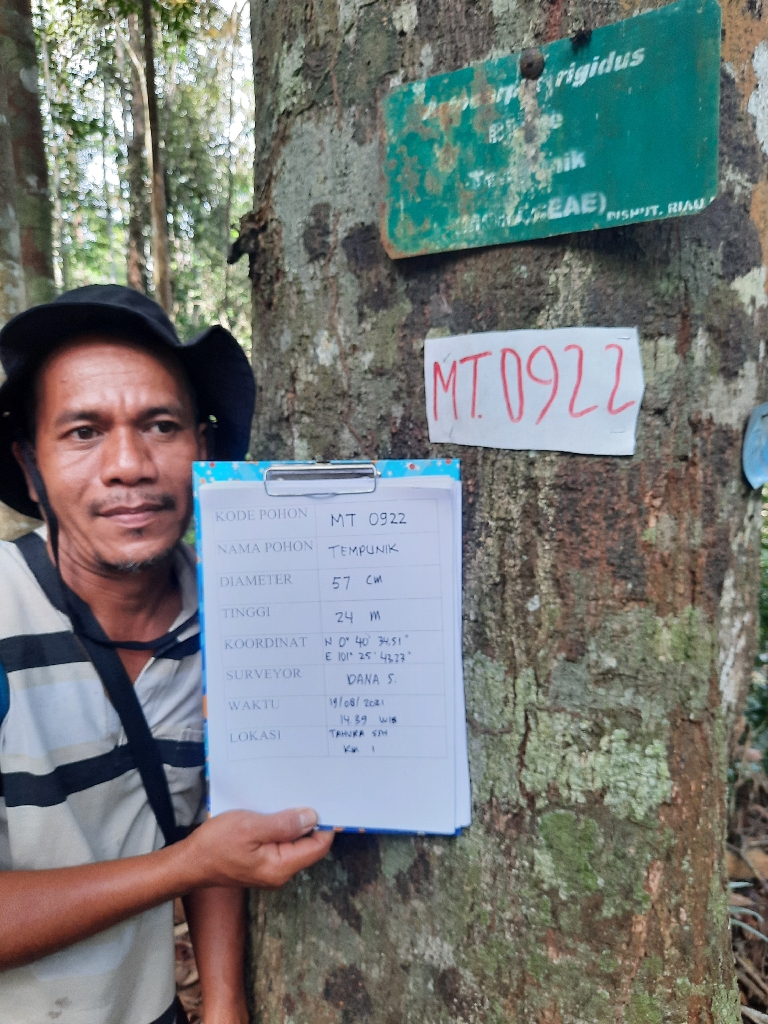 rigidus
EAE) DISHUT. RIAU
MT.0922
KODE POHON MT 0922
NAMA POHON TEMPUNIK
DIAMETER 57 CM
TINGGI 24 M
KOORDINAT N 0° 40' 34.51"
E 101° 25' 43.23"
SURVEYOR DANA S.
WAKTU 19/08/2021
14.39 WIB
LOKASI TAHURA SSH
KM 1